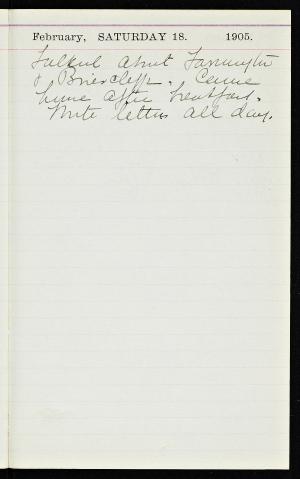 February, SATURDAY 18. 1905.
Talked about Farmington
& Briarcliff. Came
home after breakfast.
Write letters all day.